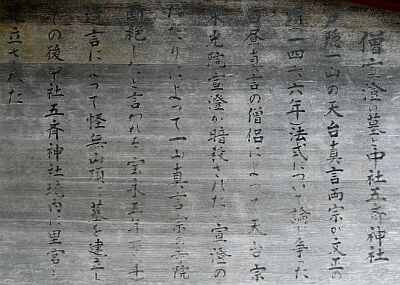 僧宣澄の墓と中社五斎神社
戸隠一山の天台真言両宗が文正の
頃一四六六年法式について論が争た
自昼真言の僧侶によって天台宗
東光院宣澄が暗殺された宣澄の
たたりによって一山真言宗の
断絶したと言われる宝永五年
遺言によって怪無山頂に墓を建立し
その後中社五斉神社境内に里宮を
建立された